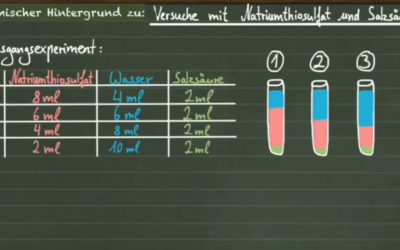 mischer Hintergrund zu: Versuche mit Natriumthiosulfat und Salzsä
sgangsexperiment:
Natriumthiosulfat Wasser Salzsäure
8 ml 4 ml 2 ml
6 ml 6 ml 2 ml
4 ml 8 ml 2 ml
2 ml 10 ml 2 ml
1 2 3